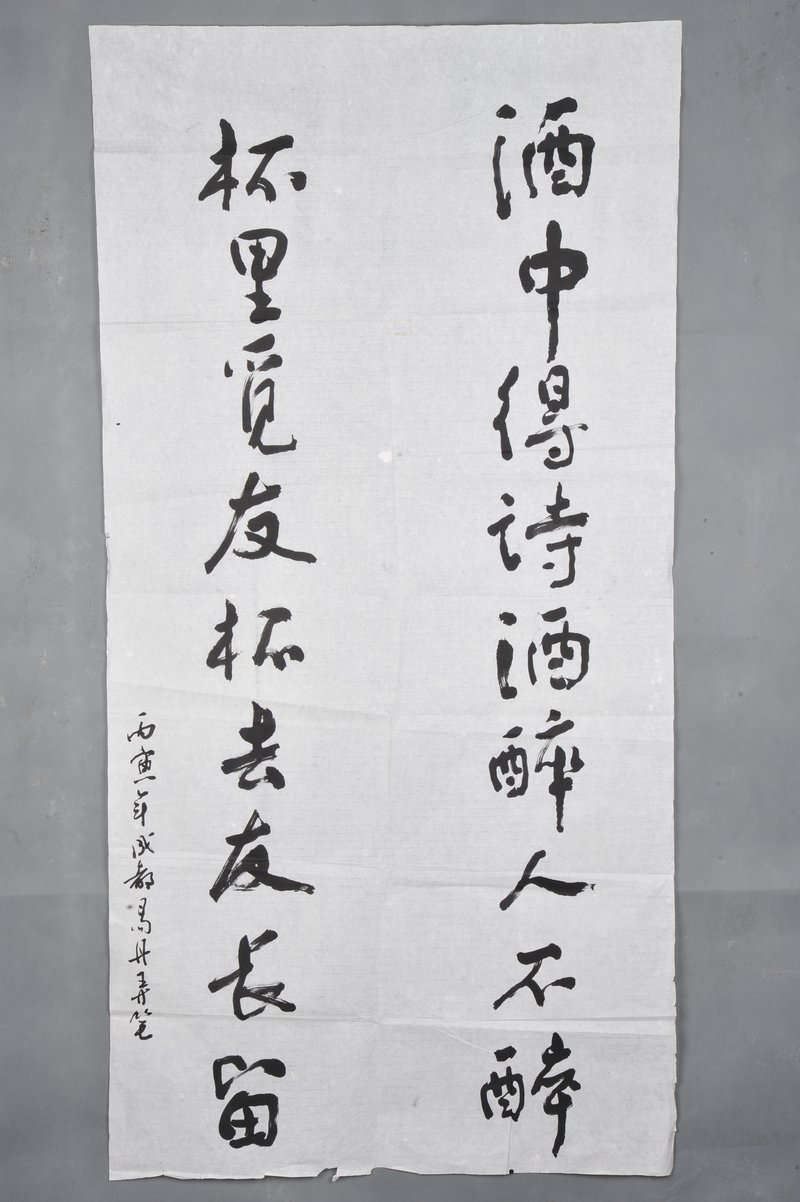 酒中得诗酒醉人不醉
杯里觅友杯去友长留
丙寅年成都马丹弄笔